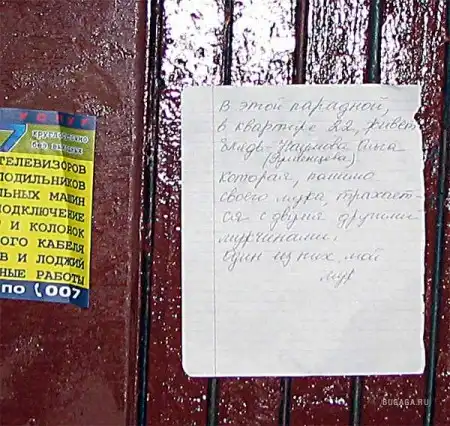 УСЛУГ
7
круглосуточно
без выходных
ТЕЛЕВИЗОРОВ
ЛОДИЛЬНИКОВ
ЛЬНЫХ МАШИН
ПОДКЛЮЧЕНИЕ
И КОЛОВОК
ОГО КАБЕЛЯ
В И ЛОДЖИЙ
НЫЕ РАБОТЫ
ПО 007
В этой парадной,
в квартире 22, живет
блядь - Наумова Ольга
которая, помимо
своего мужа, трахает-
ся с двумя другими
мужчинами.
Один из них, мой
муж
BUGAGA.RU